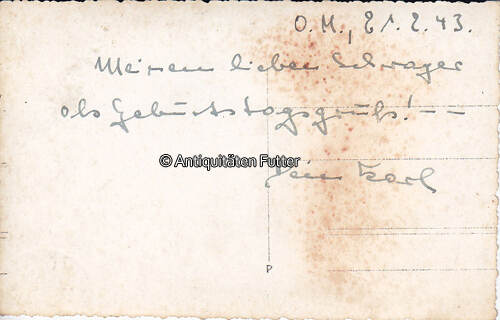 O.M., 21.2.43.
Meinem lieben Schwager
als Geburtstagsgruß! – –
© Antiquitäten Futter
Dein Karl
P